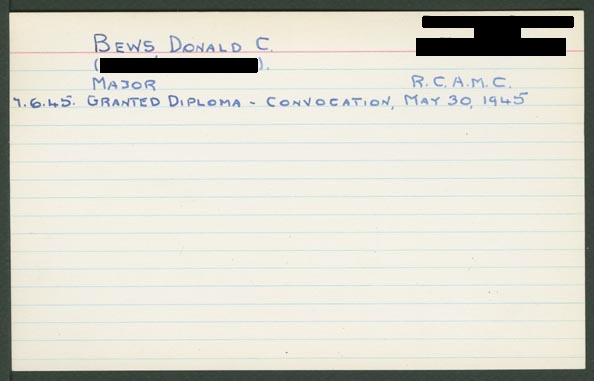 BEWS, DONALD C.
( ).
MAJOR R.C.A.M.C.
7.6.45. GRANTED DIPLOMA - CONVOCATION, MAY 30, 1945